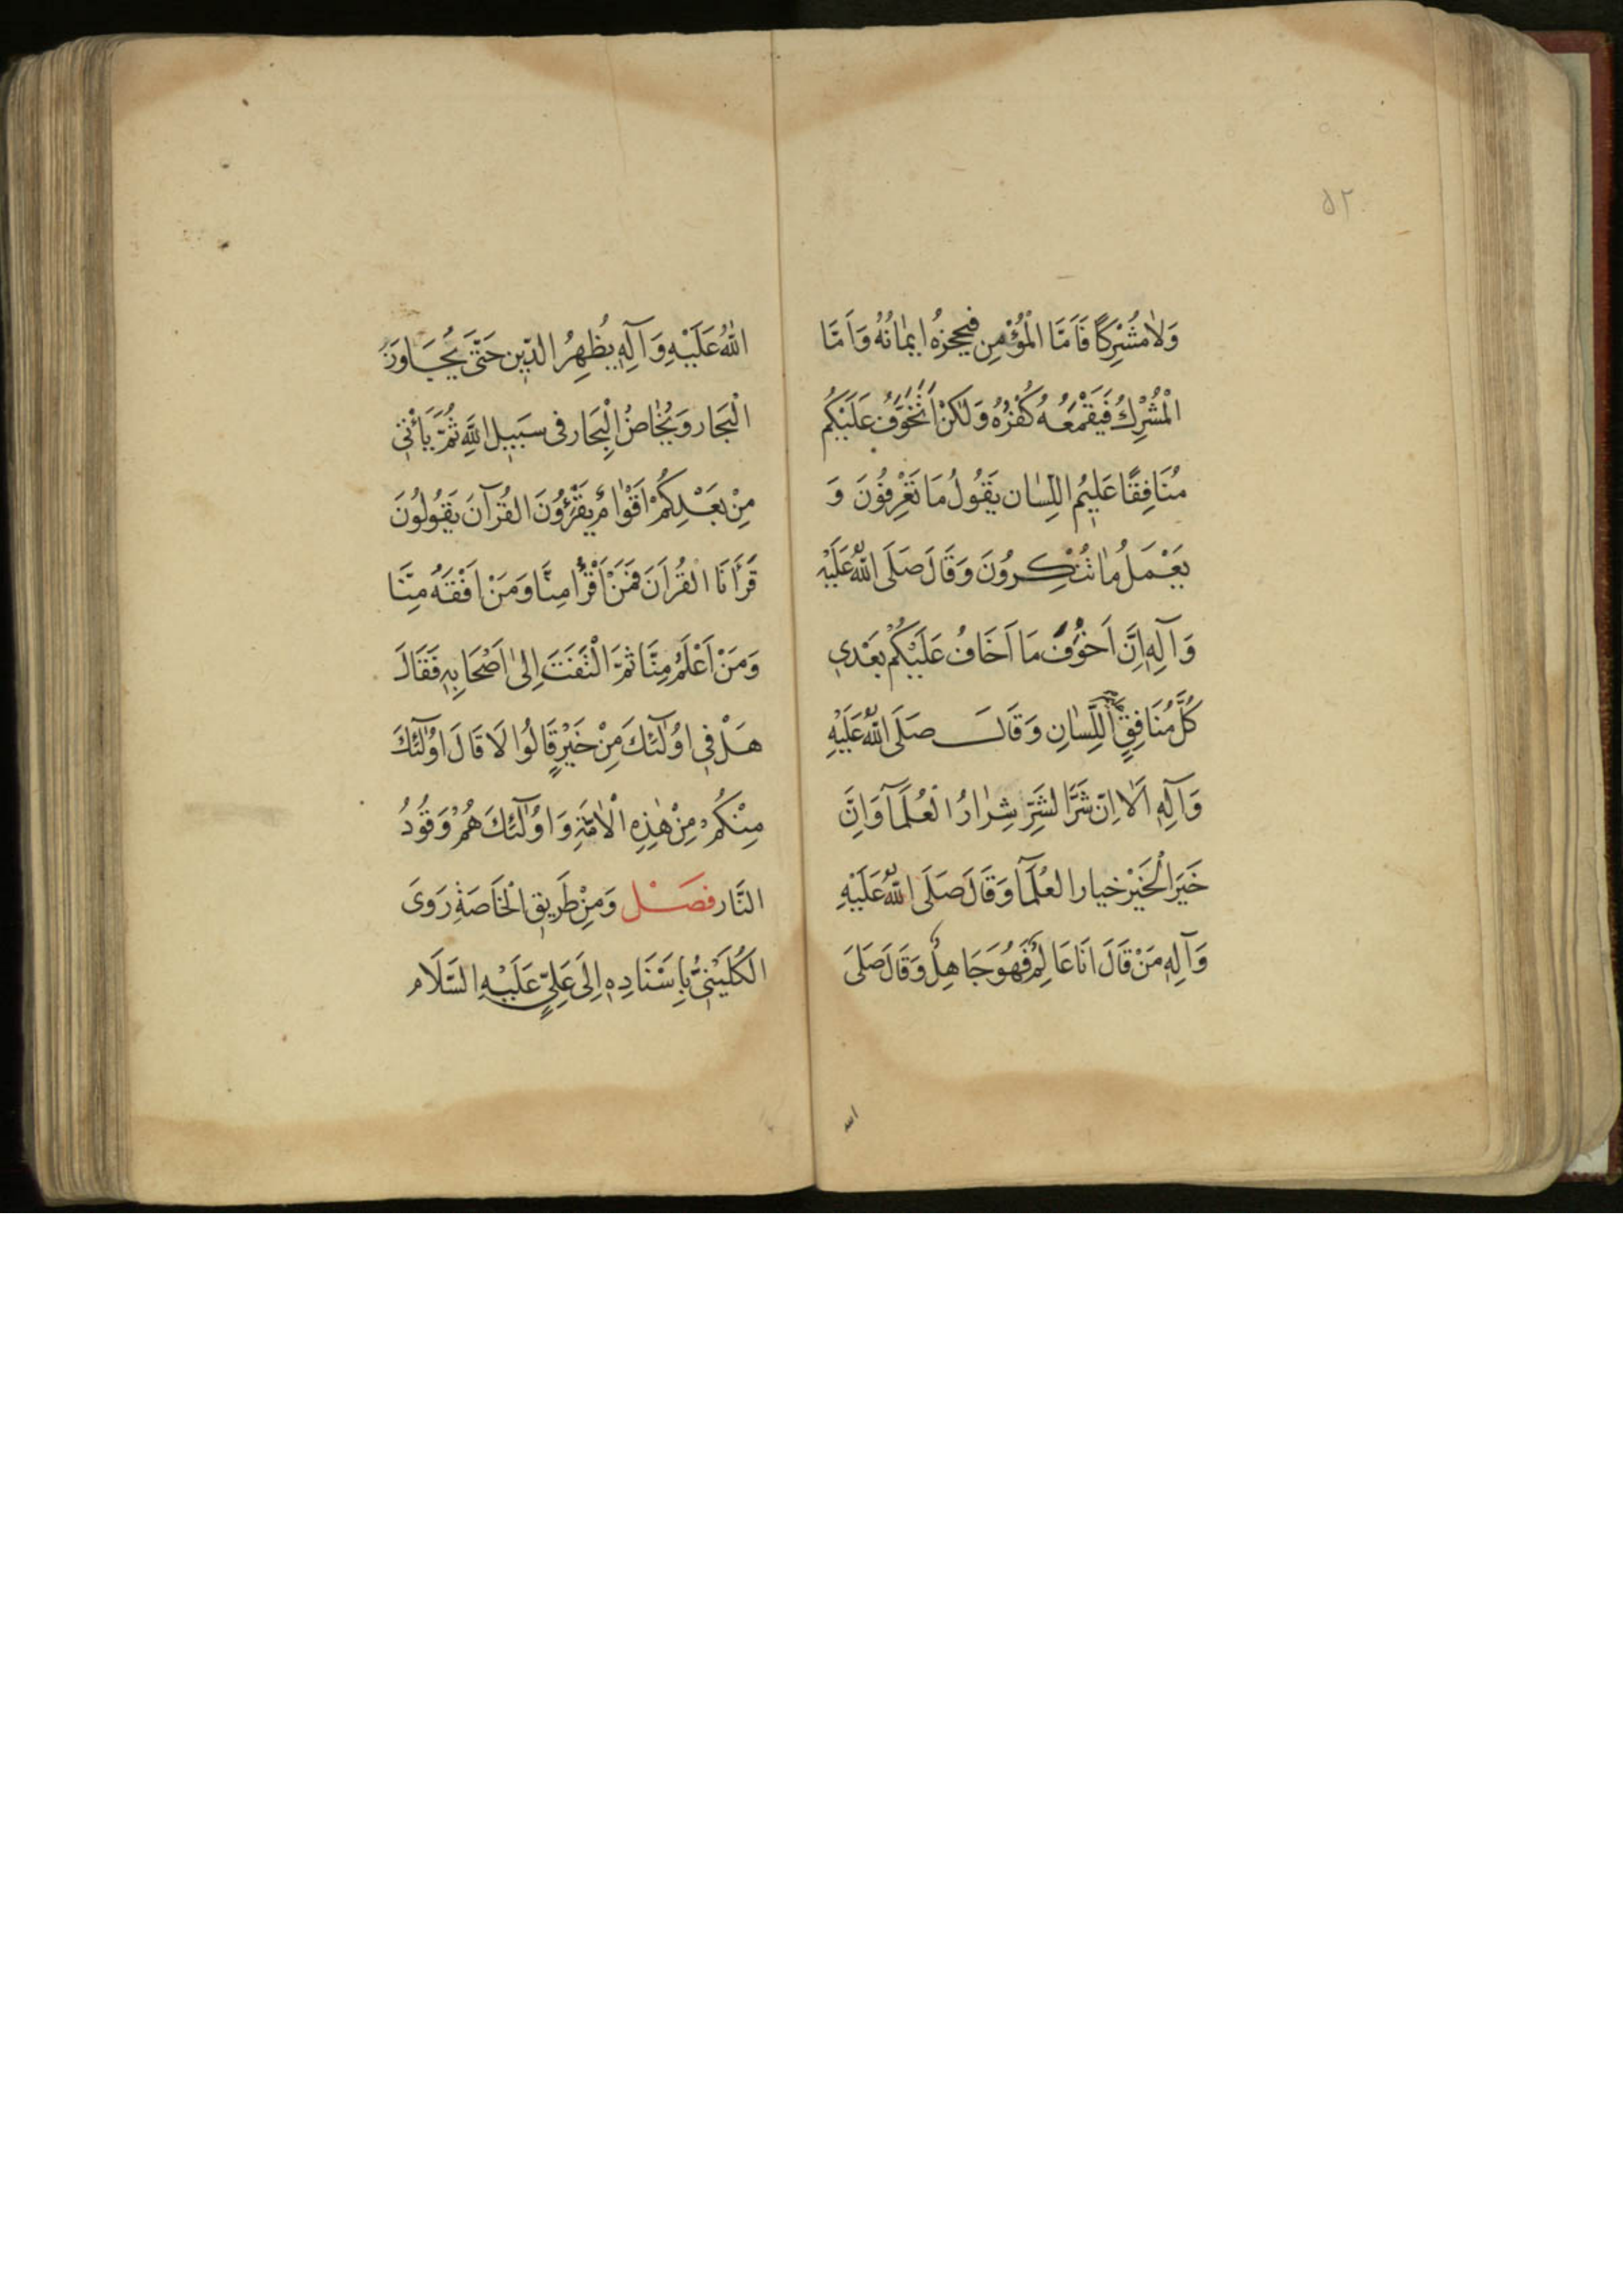 ۵۲
وَلٰا مُشْرِكًا فَاَمَّا الْمُؤْمِنِ فيحجزهُ ايمٰانُهُ وَاَمَّا
الْمُشْرِكُ فَيَقْمَعُهُ كُفْرُهُ وَلٰكِنْ اَتَخَوَّفُ عَلَيْكُم
مُنَافِقًا عَلِيُم اللِسٰان يَقُولُ مَا تَعْرِفُونَ وَ
يَعْمَلُ مٰا تُنْكِرُونَ وَقَالَ صَلَى اللّٰهُ عَلَيْهِ
وَآلِهِ اِنَّ اَخْوَفَ مَا اَخَافُ عَلَيْكُمْ بَعْدِي
كُلَّ مُنَافِقٍ اللِّسٰانِ وَقَالَ صَلَى اللّٰهُ عَلَيْهِ
وَآلِهِ اَلٰا اِنّ شَرَّ الشَرِّ شِرٰارُ الْعُلَمَآ وَاِنَّ
خَيَرَ الْخَيْر خيار العُلَمَآ وَقَالَ صَلَى اللّٰهُ عَلَيْهِ
وَآلِهِ مَنْ قَالَ اَنَا عَالِمٌ فَهُوَ جَاهِلٌ وَقَالَ صَلَى
الله
اللّٰهُ عَلَيْهِ وَآلِهِ يُظْهِرُ الدّين حَتَّى يُجَاوِزَ
الْبَحَار وَيُخٰاضُ الْبِحَار فى سَبِيل اللّٰهِ ثُمَّ يَأْتِي
مِنْ بَعْدِكُمْ اَقْوٰامٌ يَقْرَؤُونَ القُرآنَ يَقُولُونَ
قَرَأنَا القُرآنَ فَمَنْ اَقْرَأُ مِنَّا وَمَنْ اَفْقَهُ مِنَّا
وَمَنْ اَعْلَمُ مِنَّا ثمَّ الْتَفَتَ اِلىٰ اَصْحَابِهِ فَقَالَ
هَلْ في اوُلٰٓئكَ مِنْ خَيْرٍ قَالُوا لَا قَالَ اوُلٰٓئكَ
مِنْكُمْ مِنْ هٰذِهِ الْاُمَّةِ وَاوُلٰٓئكَ هُمْ وَقُودُ
النَّار فصَلْ وَمِنْ طَريقِ الْخَاصَةِ رَوَى
الكُلَيْنِيُّ بِاِسْنَادِهِ اِلَى عَلِيٍّ عَلَيْهِ السَّلَام